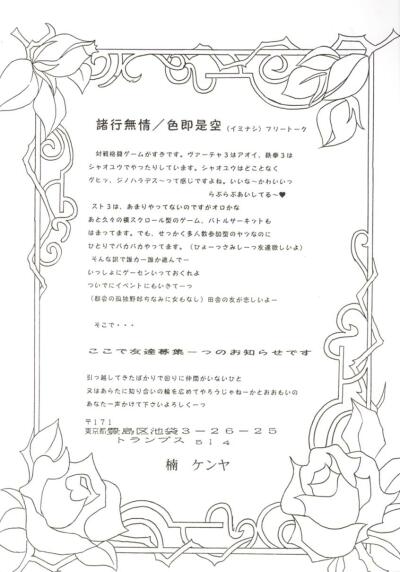 諸行無情／色即是空（イミナシ）フリートーク
対戦格闘ゲームがすきです。ヴァーチャ３はアオイ、鉄拳３は
シャオユウでやったりしています。シャオユウはどことなく
ゲヒッ、ジノハラデス〜って感じですよね。いいな〜かわいいっ
らぶらぶあいしてる〜♥
スト３は、あまりやってないのですがオロかな
あと久々の横スクロール型のゲーム、バトルサーキットも
はまってます。でも、せっかく多人数参加型のヤツなのに
ひとりでバカバカやってます。（ひょーっさみしーっ友達欲しいよ）
そんな訳で誰カー誰か遊んでー
いっしょにゲーセンいっておくれよ
ついでにイベントにもいきてーっ
（都会の孤独野郎ちなみに女もなし）田舎の友が恋しいよー
そこで・・・
ここで友達募集一つのお知らせです
引っ越してきたばかりで回りに仲間がいないひと
又はあらたに知り合いの輪を広めてやろうじゃねーかとおおもいの
あなた一声かけて下さいよろしくーっ
〒171
東京都豊島区池袋３−２６−２５
トランプス５１４
楠　ケンヤ